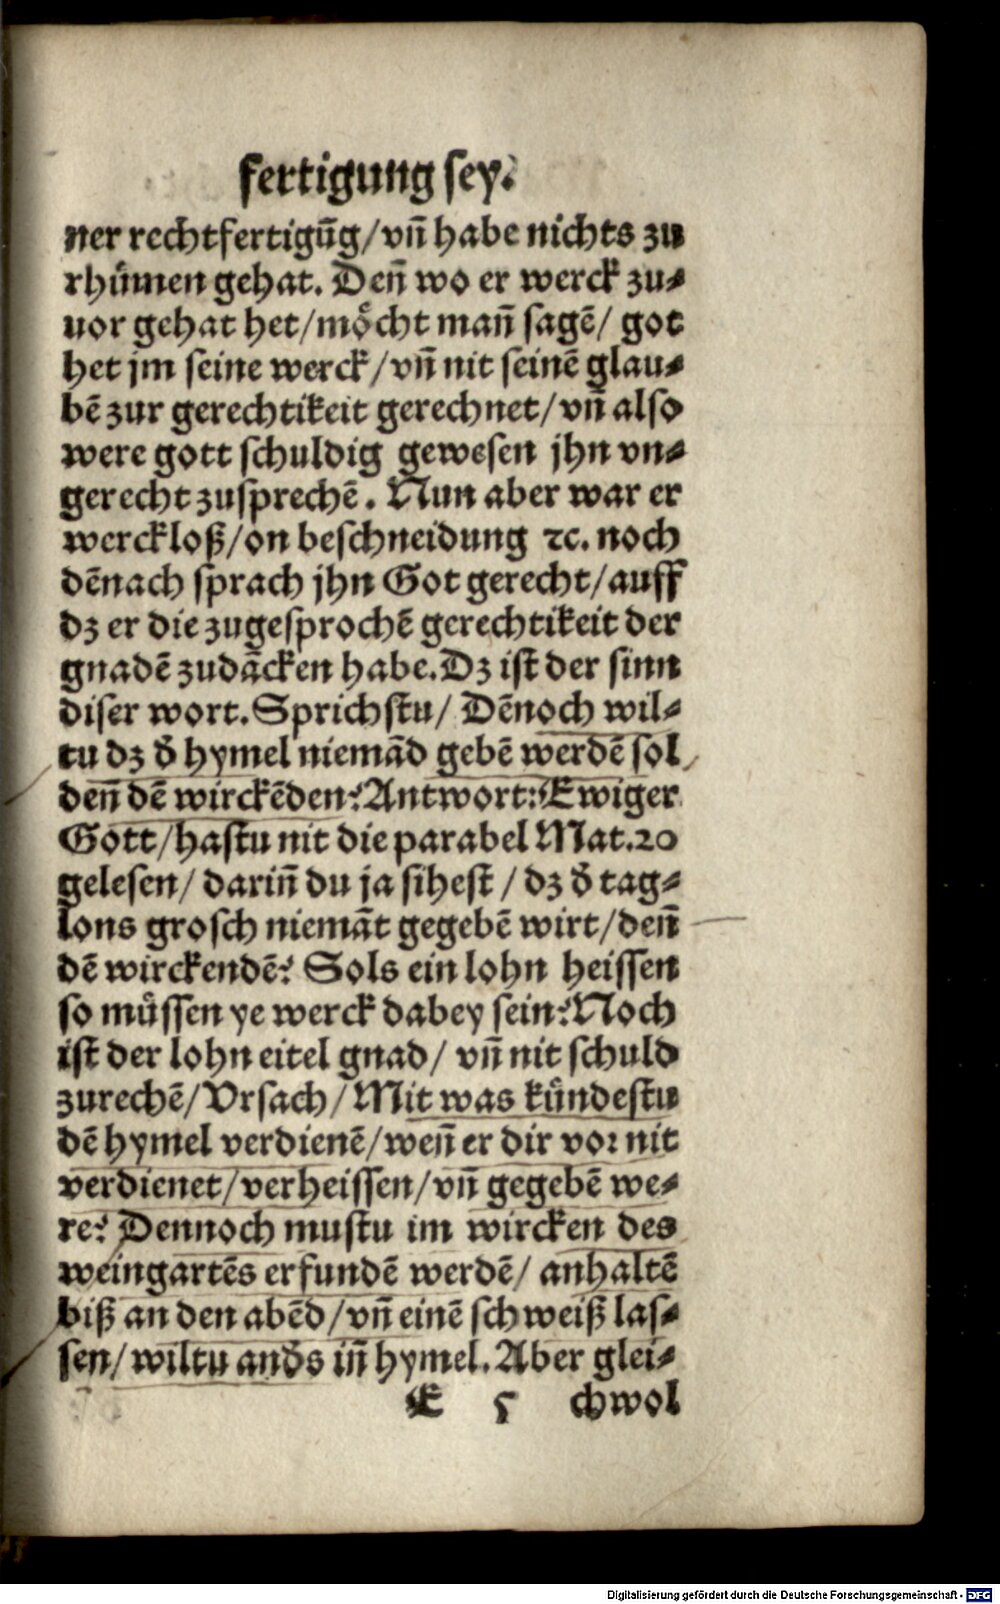 fertigung sey.
ner rechtfertigūg/vn̄ habe nichts zu
rhuͤmen gehat. Den̄ wo er werck zu⸗
uor gehat het/moͤcht man̄ sagē/ got
het jm seine werck/vn̄ nit seinē glau⸗
bē zur gerechtikeit gerechnet/vn̄ also
were gott schuldig gewesen jhn vn⸗
gerecht zusprechē. Nun aber war er
werckloß/on beschneidung ꝛc. noch
dēnach sprach jhn Got gerecht/auff
dz er die zugesprochē gerechtikeit der
gnadē zudācken habe. Dz ist der sinn
diser wort. Sprichstu/ Dēnoch wil⸗
tu dz d̄ hymel niemād gebē werdē sol
den̄ dē wirckēden? Antwort: Ewiger
Gott/hastu nit die parabel Mat.20
gelesen/ darin̄ du ja sihest/ dz d̄ tag⸗
lons grosch niemāt gegebē wirt/den̄
dē wirckendē? Sols ein lohn heissen
so muͤssen ye werck dabey sein? Noch
ist der lohn eitel gnad/ vn̄ nit schuld
zurechē/ Vrsach/ Mit was kuͤndestu
dē hymel verdienē/wen̄ er dir voꝛ nit
verdienet/verheissen/vn̄ gegebē we⸗
re? Dennoch mustu im wircken des
weingartēs erfundē werdē/ anhaltē
biß an den abēd/vn̄ einē schweiß las⸗
sen/wiltu and̄s in̄ hymel. Aber glei⸗
E 5 chwol
Digitalisierung gefördert durch die Deutsche Forschungsgemeinschaft - DFG